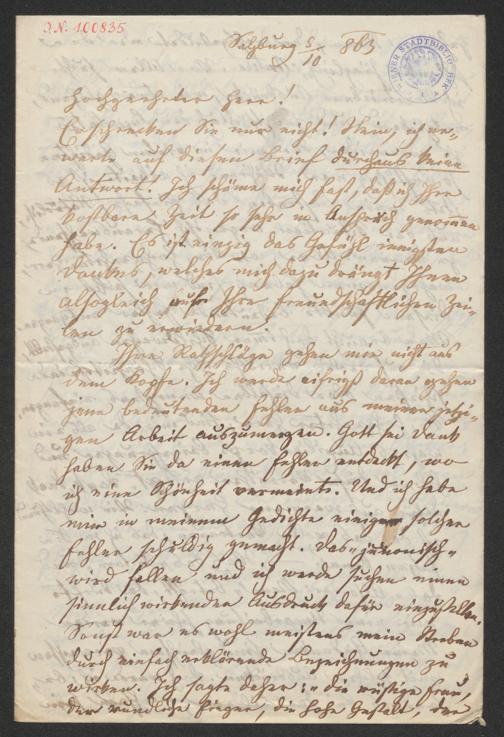 J.N. 100835
Salzburg 5/10 863
WIENER STADTBIBLIOTHEK
Hochgeehrter Herr!
Erschrecken Sie nur nicht! Nein, ich er-
warte auf diesen Brief durchaus keine
Antwort. Ich schäme mich fast, daß ich Ihre
kostbare Zeit so sehr in Anspruch genommen
habe. Es ist einzig das Gefühl innigsten
Dankes, welches mich dazu drängt Ihnen
alsogleich auf Ihre freundschaftlichen Zei-
len zu erwiedern.
Ihre Rathschläge gehen mir nicht aus
dem Kopfe. Ich werde eifrigst daran gehen
jene bedeutenden Fehler aus meiner jetzi-
gen Arbeit auszumerzen. Gott sei Dank
haben Sie da einen Fehler entdeckt, wo
ich eine Schönheit vermeinte. Und ich habe
mich in meinem Gedichte einiger solcher
Fehler schuldig gemacht. Das „junonisch“
wird fallen und ich werde suchen einen
sinnlich wirkenden Ausdruck dafür einzustellen.
Sonst war es wohl meistens mein Streben
durch einfach erklärende Bezeichnungen zu
wirken. Ich sagte daher: „die rüstige Frau,
der rundliche Finger, die hohe Gestalt, der